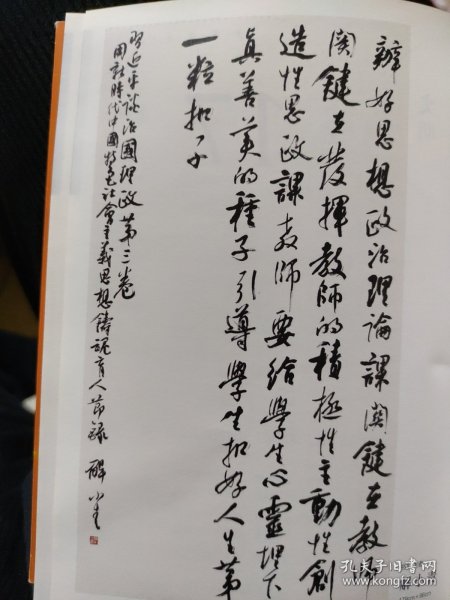 辦好思想政治理論課關鍵在教師
關鍵在發揮教師的積極性主動性創
造性思政課教師要給學生心靈埋下
真善美的種子引導學生扣好人生第
一粒扣子
習近平談治國理政第三卷
用新時代中國特色社會主義思想鑄魂育人節錄
孔夫子旧书网